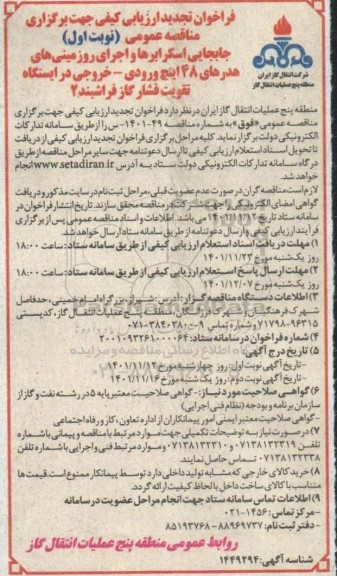 فراخوان تجدید ارزیابی کیفی جهت برگزاری
مناقصه عمومی (نوبت اول)
جابجایی اسکرابرها و اجرای روزمینی‌های
هدرهای ۴۸ اینچ ورودی - خروجی در ایستگاه
تقویت فشار گاز فراشبند ۲
شرکت انتقال گاز ایران
منطقه پنج عملیات انتقال گاز
منطقه پنج عملیات انتقال گاز ایران در نظر دارد فراخوان تجدید ارزیابی کیفی جهت برگزاری
مناقصه عمومی «فوق» به شماره مناقصه ۴۹-۱۴۰۱-س را از طریق سامانه تدارکات
الکترونیکی دولت برگزار نماید. کلیه مراحل برگزاری فراخوان تجدید ارزیابی کیفی از دریافت
تا تحویل اسناد استعلام ارزیابی کیفی تا ارسال دعوتنامه جهت سایر مراحل مناقصه از طریق
درگاه سامانه تدارکات الکترونیکی دولت ستاد به آدرس www.setadiran.ir انجام
خواهد شد.
لازم است مناقصه گران در صورت عدم عضویت قبلی، مراحل ثبت نام در سایت مذکور و دریافت
گواهی امضای الکترونیکی را جهت شرکت در مناقصه محقق سازند. تاریخ انتشار فراخوان در
سامانه ستاد تاریخ می باشد. اطلاعات و اسناد مناقصه عمومی پس از برگزاری
فرآیند ارزیابی کیفی و ارسال دعوتنامه از طریق سامانه ستاد ارسال خواهد شد.
۱) مهلت دریافت اسناد استعلام ارزیابی کیفی از طریق سامانه ستاد: ساعت ۱۸:۰۰
روز یک‌شنبه مورخ ۱۴۰۱/۱۱/۲۳
۲) مهلت ارسال پاسخ استعلام ارزیابی کیفی از طریق سامانه ستاد: ساعت ۱۸:۰۰
روز یک‌شنبه مورخ ۱۴۰۱/۱۲/۰۷
۳) اطلاعات دستگاه مناقصه گزار: آدرس: شیراز، بزرگراه امام خمینی، حدفاصل
شهرک فرهنگیان و شهرک فرزانگان، منطقه پنج عملیات انتقال گاز، کدپستی
۷۱۷۹۸-۹۶۳۱۵ و شماره تماس ۹-۰۷۱-۳۸۴۰۳۸۰۰
۴) شماره فراخوان در سامانه ستاد: ۲۰۰۱۰۹۳۲۶۱۰۰۰۰۶۴
۵) تاریخ درج آگهی:
- تاریخ آگهی نوبت اول: روز چهارشنبه مورخ ۱۴۰۱/۱۱/۱۲
- تاریخ آگهی نوبت دوم: روز یک شنبه مورخ ۱۴۰۱/۱۱/۱۶
۶) گواهی صلاحیت مورد نیاز: - گواهی صلاحیت معتبر پایه ۵ در رشته نفت و گاز از
سازمان برنامه و بودجه (نظام فنی اجرایی)
- گواهی صلاحیت معتبر ایمنی امور پیمانکاران از اداره تعاون، کار و رفاه اجتماعی
۷) در صورت نیاز به توضیحات تکمیلی جهت موارد مرتبط با مناقصه و پیمانی با شماره
تلفن ۰۷۱۳۸۱۳۲۳۱۹ و ۰۷۱۳۸۱۳۲۳۱۰ و موارد مرتبط فنی و اجرایی با شماره تلفن
۰۷۱۳۸۱۳۲۳۳۸ تماس حاصل نمایند.
۸) خرید کالای خارجی که مشابه تولید داخلی دارد توسط پیمانکار ممنوع است. قیمت‌ها
متناسب با کالای ساخت داخل با لحاظ کیفیت ارائه گردد.
۹) اطلاعات تماس سامانه ستاد جهت انجام مراحل عضویت در سامانه
- مرکز تماس: ۱۴۵۶-۰۲۱
- دفتر ثبت نام: ۸۸۹۶۹۷۳۷ - ۸۵۱۹۳۷۶۸
روابط عمومی منطقه پنج عملیات انتقال گاز
شناسه آگهی: ۱۴۴۹۲۹۴